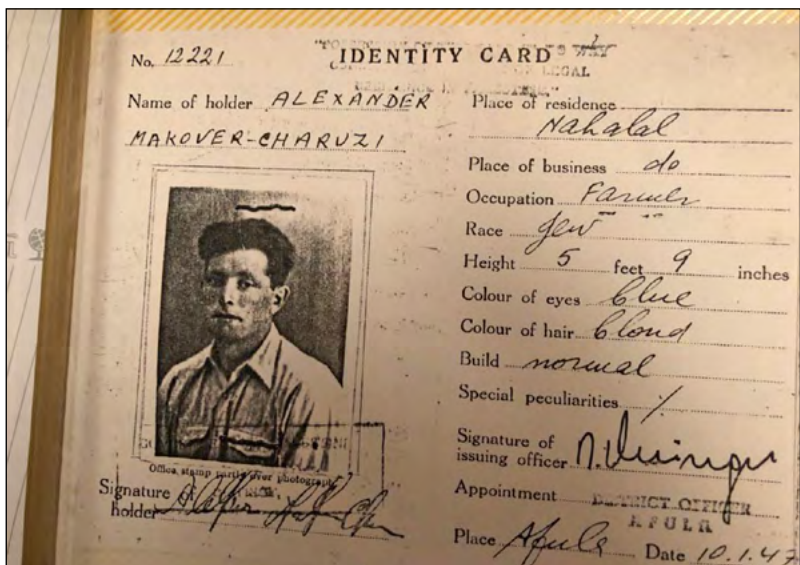 No. 12221
IDENTITY CARD
LEGAL
Name of holder ALEXANDER
MAKOVER-CHARUZI
Office stamp partly over photograph
Signature of
holder
Place of residence
Nahalal
Place of business do
Occupation Farmer
Race Jew
Height 5 feet 9 inches
Colour of eyes blue
Colour of hair blond
Build normal
Special peculiarities /
Signature of
issuing officer
Appointment DISTRICT OFFICER
AFULA
Place Afula Date 10.1.47